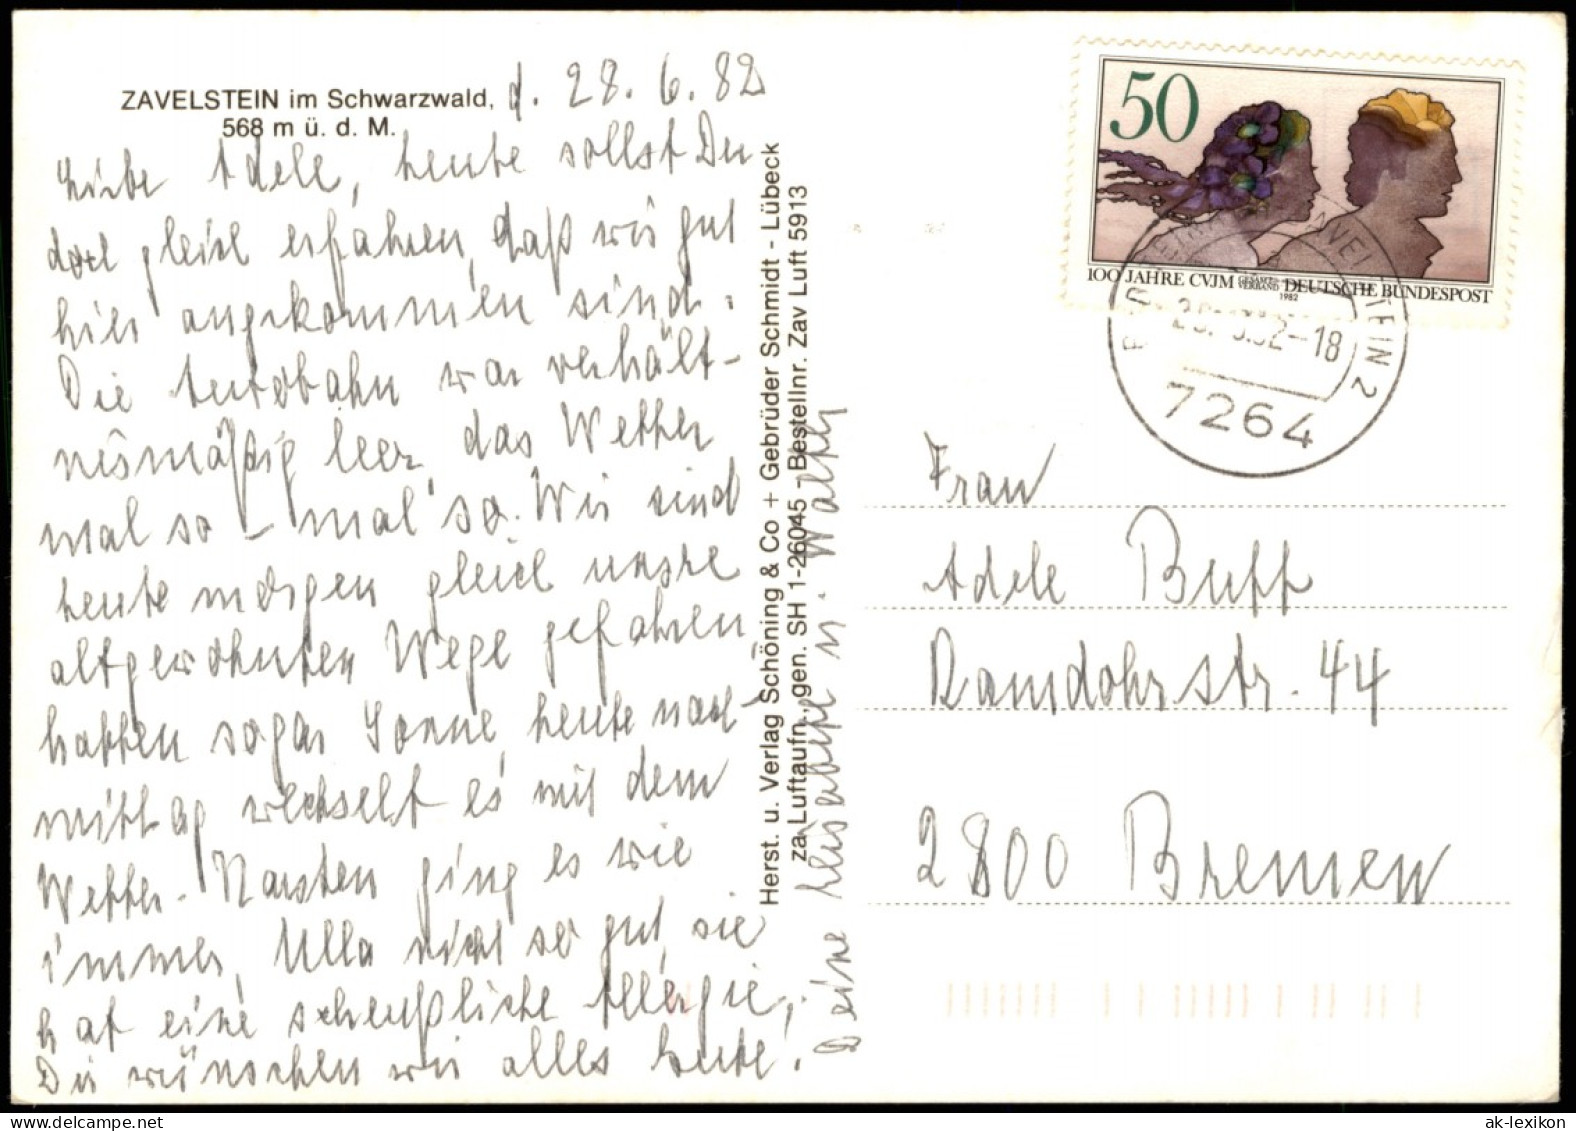 ZAVELSTEIN im Schwarzwald,
568 m ü. d. M.
d. 28. 6. 82
Liebe Adele, heute sollst Du
doch gleich erfahren, daß wir gut
hier angekommen sind.
Die Autobahn war verhält-
nismäßig leer, das Wetter
mal so – mal so. Wir sind
heute morgen gleich unsre
altgewohnten Wege gefahren,
hatten sogar Sonne, heute nach-
mittag wechselt es mit dem
Wetter. Karsten ging es wie
immer, Ulla nicht so gut, sie
hat eine scheußliche Allergie,
Dir wünschen wir alles Gute!
Deine Lieselotte u. Walter
Herst. u. Verlag Schöning & Co + Gebrüder Schmidt - Lübeck
za Luftaufn. gen. SH 1-26045 - Bestellnr. Zav Luft 5913
50
100 JAHRE CVJM GESAMT-VERBAND DEUTSCHE BUNDESPOST
1982
-18
7264
Frau
Adele Buff
Ramdohrstr. 44
2800 Bremen
ak-lexikon.com